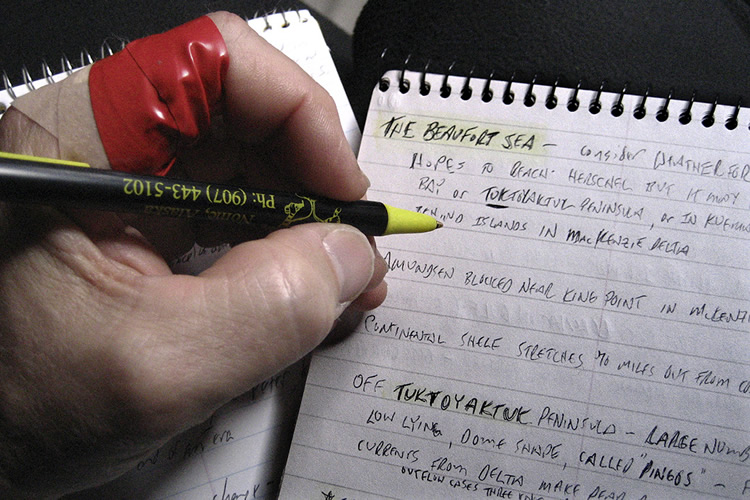 THE BEAUFORT SEA - CONSIDER WEATHER FOR
HOPES TO REACH HERSCHEL BUT IT MAY
BAY OR TUKTOYAKTUK PENINSULA, OR IN
BEHIND ISLANDS IN MACKENZIE DELTA
AMUNDSEN BLOCKED NEAR KING POINT IN MCKENZI
CONTINENTAL SHELF STRETCHES 70 MILES OUT FROM CO
OFF TUKTOYAKTUK PENINSULA - LARGE NUMB
LOW LYING, DOME SHAPE, CALLED "PINGOS" -
CURRENTS FROM DELTA MAKE
OUTFLOW CASES THREE
Nome, Alaska
Ph: (907) 443-5102